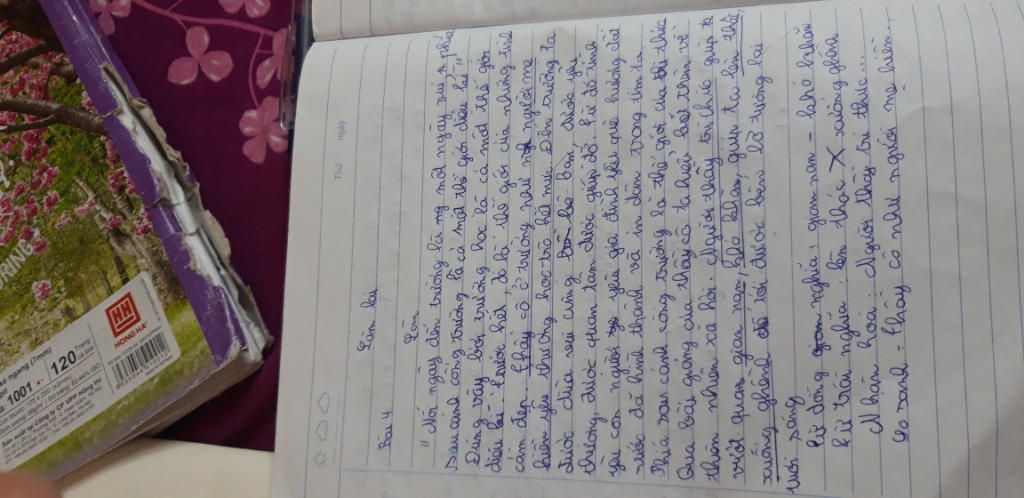 Thứ ngày
Bài 4
Làm bài
Làm
" Mỗi ngày đến trường là một ngày vui + phía
sau cánh cổng trường là cả một thế giới diệu kì "
Đúng vậy bởi trường học là cả một thế giới
diệu kì. Trước hết, đó là thế giới của những tình
cảm đẹp. Thầy cô ở trường như người mẹ
hiền yêu thương học trò hết mực. Đến trường ta
được đùa vui cùng bè bạn, được yêu
thương, được quan tâm được giúp đỡ. Từ đó tình
yêu con người yêu gia đình yêu quê hương đất
nước đã hình thành và in đậm trong tim ta.
Phía sau cánh cổng trường là thế giới của tri thức
Qua bài giảng của thầy cô ta hiểu biết thêm về
thiên nhiên xã hội. Người thầy tri thức giúp ta
vượt quan gian nan, khó khăn, giúp ta lên thác
xuống ghềnh để tới được bến bờ tương lai
tươi sáng
Từ đồng nghĩa: gian nan - khó khăn
Từ trái nghĩa: lên thác X xuống ghềnh
Nhân hoá: Người thầy tri thức...
So sánh - Thầy cô như người mẹ hiền...
RING
HH
HỒNG HÀ
kẻ ngang (7mm)
1001
120 Trang